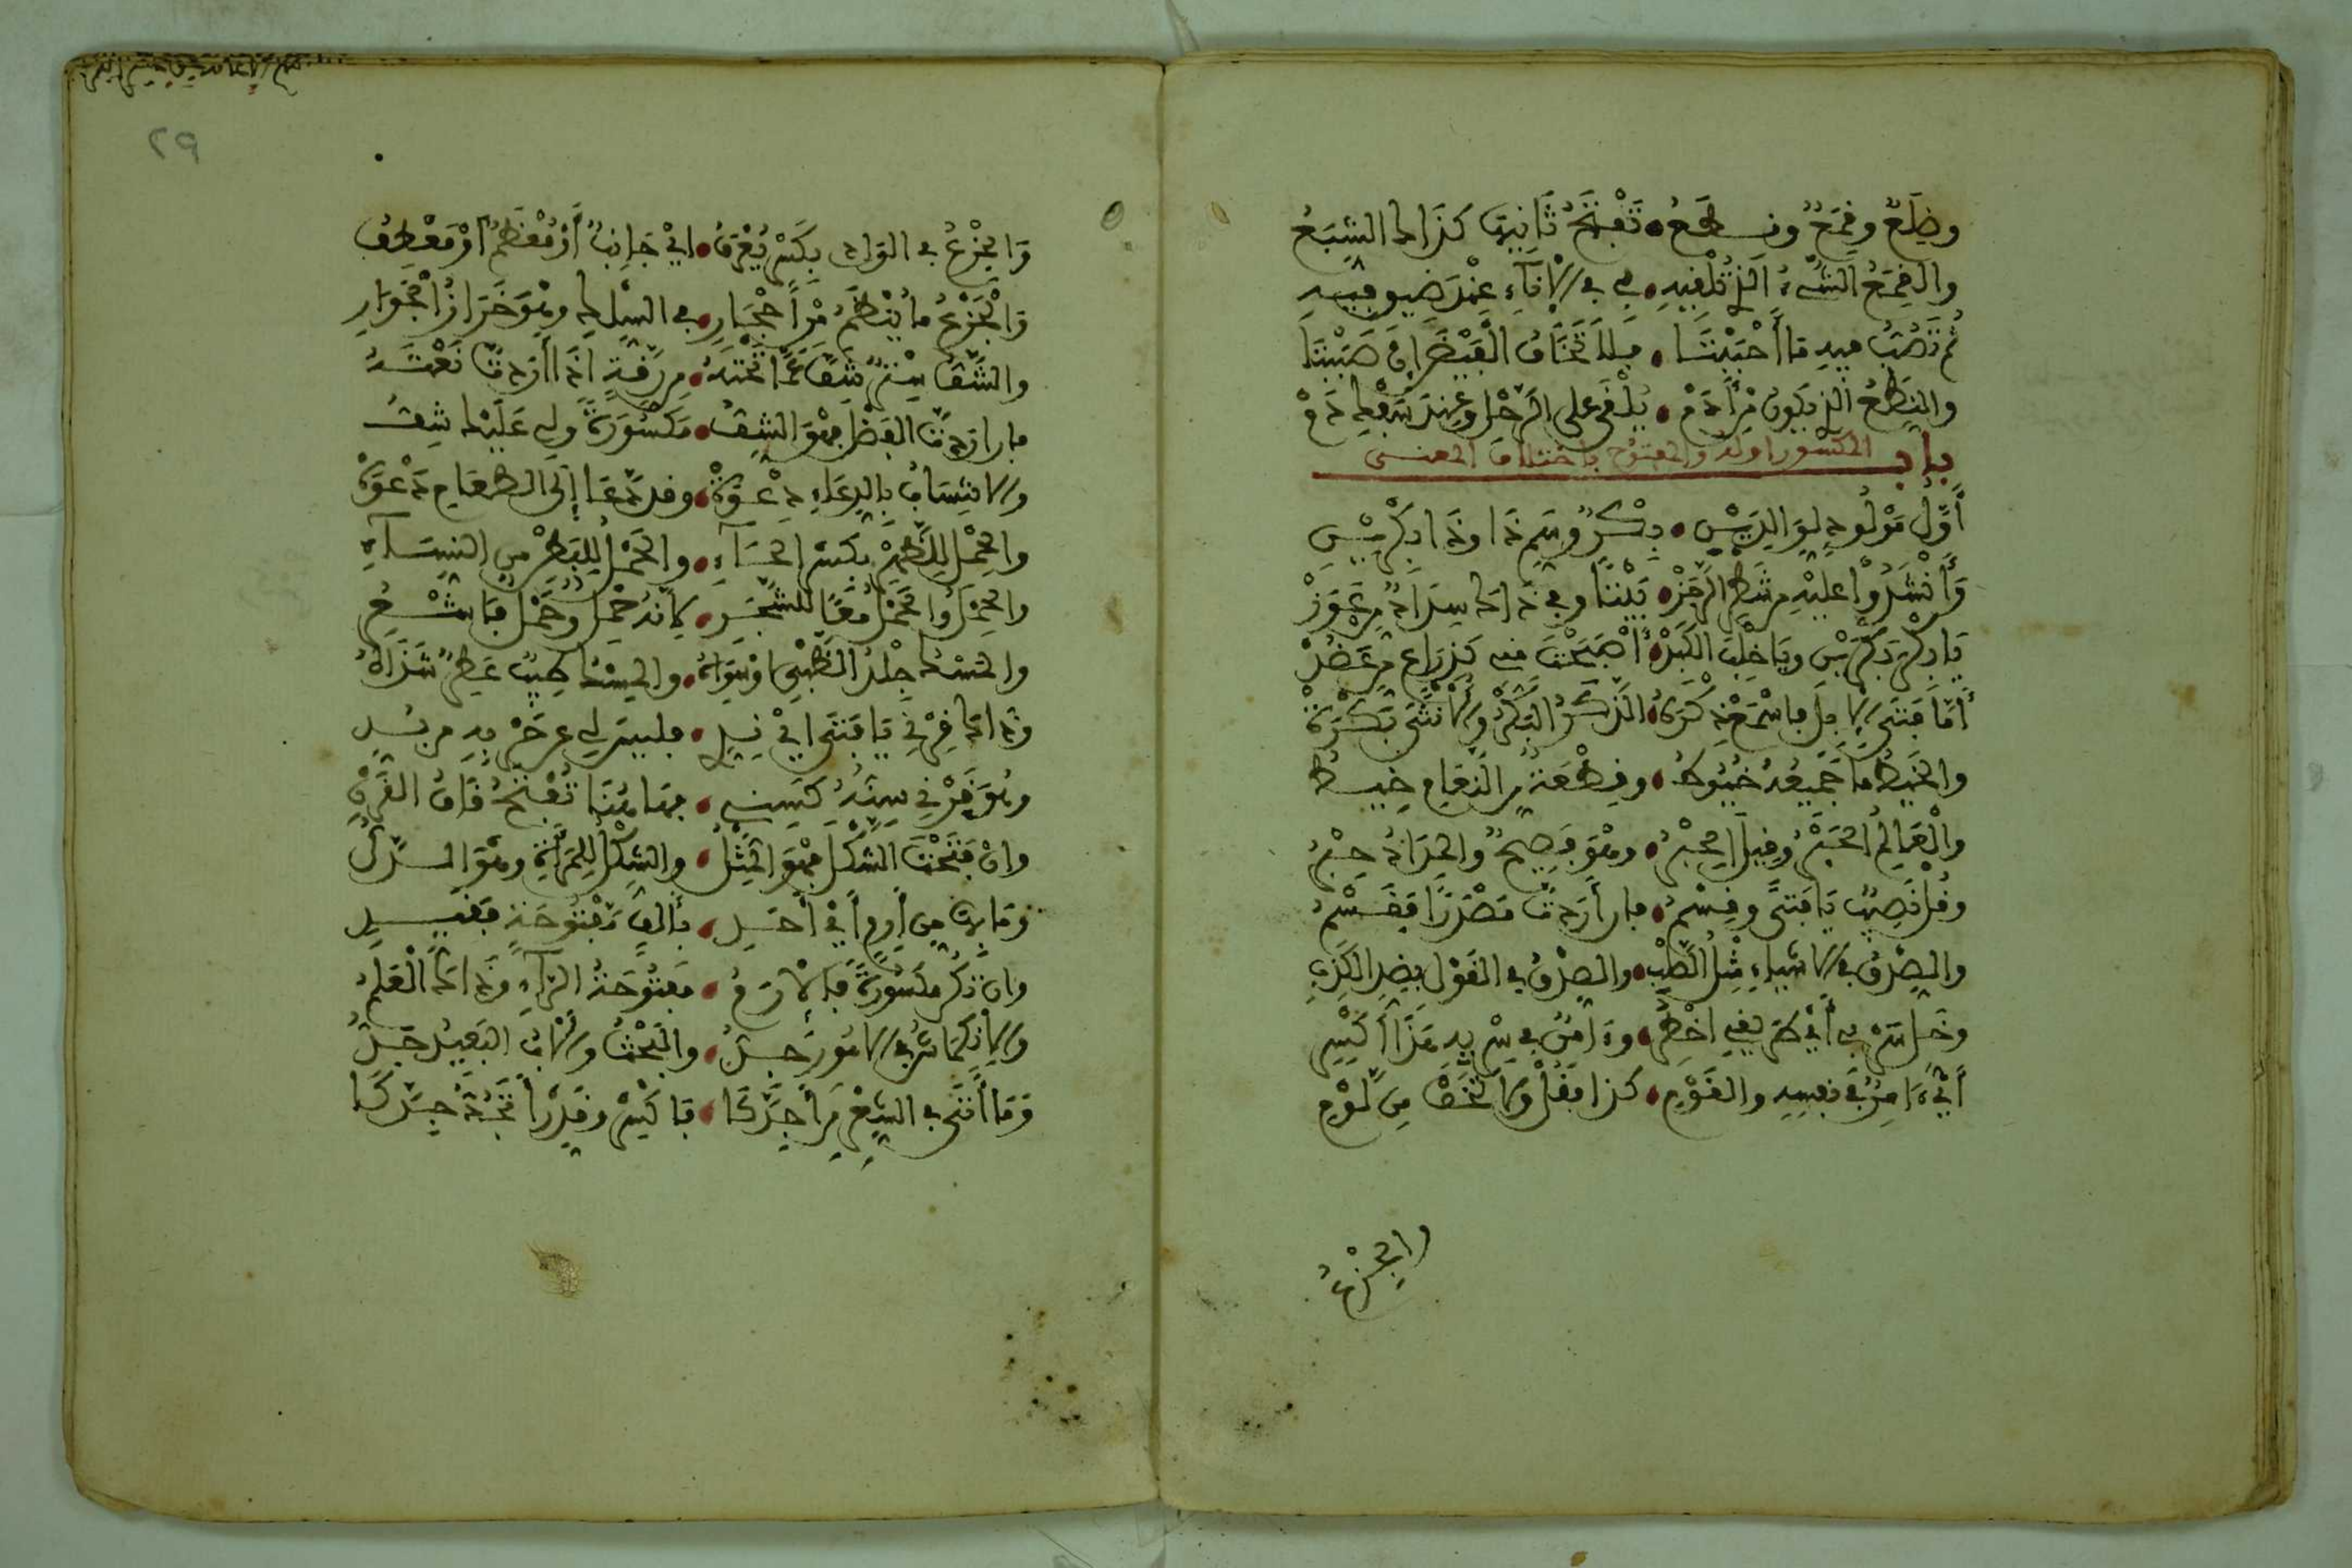 وضِلَعٌ وقِمَعٌ ونِطَعُ • تَفْتَحُ ثَانِيهَا كذاك الشِّبَعُ
والقِمَعُ الشيءُ الذي تُلْفِيهِ • في الإناءِ عِنْدَ ضِيقِ فِيهِ
ثم تَصُبُّ فيه ما أَحْبَبْتَا • فلا تَخَافُ الفَيْضَ إن صَبَبْتَا
والنِّطَعُ الذي يكون مِن أَدَمْ • يُلْقَى على الرَّحْلِ وعِندَ سَفْكِ دَمْ
باب المكسور اوله والمفتوح باختلاف المعنى
أَوَّلُ مَوْلُودٍ لِوَالِدَيْنِ • بِكْرٌ وسَمِّ ذَا وذَا بِكْرَيْنِ
وَأَنْشَدُوا عليه من شَطْرِ الرَّجَزْ • بَيْتًا وفي ذاك سِدَادٌ من عَوَزْ
يَا بِكْرَ بِكْرَيْنِ ويَا خِلْبَ الكَبِدْ • أَصْبَحْتَ مني كَذِرَاعٍ من عَضُدْ
أَمَّا فَتَى الإبل فاسْمَعْ ذِكْرَهُ • الذَّكَرُ البَكْرُ والأُنْثَى بَكْرَهْ
والخَيْطُ ما جَمِيعُهُ خُيُوطُ • وقِطْعَةٌ من النَّعَامِ خِيطُ
والْعَالِمُ الحَبْرُ وقِيلَ الحِبْرُ • وهْوَ فَصِيحٌ والمِدَادُ حِبْرُ
وقُلْ نَصِيبٌ يَا فَتًى وقِسْمُ • فإن أَرَدتَّ مَصْدَرًا فَقَسْمُ
والصَّدْقُ في الأشياءِ مِثْلُ الصُّلْبِ • والصِّدْقُ في القَوْلِ بضِدِّ الكَذِبِ
وخَلِّ سَرْبي أَيْ طَرِيقي اخْطِرِ • وءَامِنٌ في سِرْبِهِ هَذَا اكْسِرِ
أَيْ ءَامِنٌ في نفسِه والقَوْمِ • كذا فَقُلْ ولا تَخَفْ مِن لَّوْمِ
والجِزْعُ
٢٩
وَالجِزْعُ في الوَادِ بكَسْرٍ يُعْرَفُ • أيْ جَانِبٌ أَوْ مُعْظَمٌ أوْ مَعْطِفُ
وَالْجَزْعُ ما يُنْظَمُ مِنْ أَحْجَارِ • في السِّلْكِ وهْوَ خَرَزُ الْجَوَارِ
والشَّفُّ سِتْرٌ شَفَّ عَمَّا تَحْتَهُ • من رِقَّةٍ إذا أَرَدتَّ نَعْتَهُ
فإن اردتَّ الفَضْلَ فهْوَ الشِّفُّ • مَكْسُورَةً ولي عَلَيْكَ شِفُّ
والانتِسَابُ بالدِّعَاءِ دِعْوَةْ • وقد دَّعَا إلى الطعَامِ دَعْوَةْ
والحِمْلُ لِلظَّهْرِ بكَسْرِ الحَاءِ • والحَمْلُ لِلبَطْنِ من النِسَاءِ
والحِمْلُ والحَمْلُ معًا للشَّجَرِ • لأنَّهُ حِمْلٌ وحَمْلٌ فاشْعُرِ
والمَسْكُ جِلْدُ الظَّبْيِ اوْ سِوَاهُ • والمِسْكُ طِيبٌ عَطِرٌ شَذَاهُ
وذَاكَ قِرْنِي يَا فَتَى أيْ نِدِّي • فليسَ لي عن حَرْبِهِ من بُدِّ
وهْوَ قَرْنِي سِنُّهُ كَسِنِي • فهاهُنَا تَفْتَحُ قَافَ القَرْنِ
وإنْ فَتَحْتَ الشَّكْلَ فهْوَ المِثْلُ • والشِّكْلُ لِلمَرْأَةِ وهْوَ الدَّلُّ
ومَا بها مِن أَرِمٍ أَيْ أَحَدِ • بألفٍ مَفْتُوحَةٍ فقيدِ
وإن تَكُنْ مكسُورَةً فَالإرَمُ • مَفْتُوحَةُ الرَّاءِ وذَاكَ الْعَلَمُ
والانْكِمَاشُ في الأمُورِ جِدُّ • والبَخْتُ والأبُ البَعِيدُ جَدُّ
ومَا أَتَى في الشِّعْرِ مِن أَجِدَّكَا • فاكْسِرْ وقَدِّرْ أَتَجِدُّ جِدَّكَا